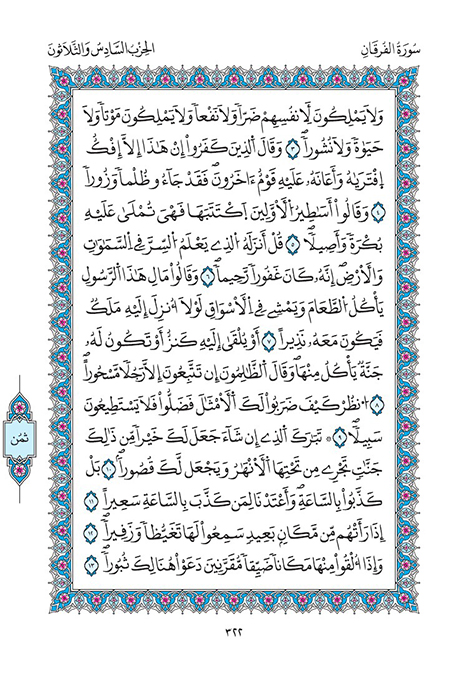 سورة الفرقان
الحزب السادس والثلاثون
وَلَا يَمْلِكُونَ لِأَنفُسِهِمْ ضَرّاً وَلَا نَفْعاً وَلَا يَمْلِكُونَ مَوْتاً وَلَا
حَيَوٰةً وَلَا نُشُوراً ٣ وَقَالَ اَلذِينَ كَفَرُوٓاْ إِنْ هَٰذَآ إِلَّآ إِفْكٌ
اِفْتَر۪يٰهُ وَأَعَانَهُۥ عَلَيْهِ قَوْمٌ ءَاخَرُونَۖ فَقَدْ جَآءُو ظُلْماً وَزُوراً
٤ وَقَالُوٓاْ أَسَٰطِيرُ اُلْأَوَّلِينَ اَكْتَتَبَهَا فَهِيَ تُمْلَىٰ عَلَيْهِ
بُكْرَةً وَأَصِيلاً ٥ قُلْ أَنزَلَهُ اُلذِے يَعْلَمُ اُلسِّرَّ فِے اِلسَّمَٰوَٰتِ
وَالْأَرْضِۖ إِنَّهُۥ كَانَ غَفُوراً رَّحِيماً ٦ وَقَالُواْ مَالِ هَٰذَا اَلرَّسُولِ
يَأْكُلُ اُلطَّعَامَ وَيَمْشِے فِے اِلْأَسْوَاقِ لَوْلَآ أُنزِلَ إِلَيْهِ مَلَكٌ
فَيَكُونَ مَعَهُۥ نَذِيراً ٧ أَوْ يُلْقَىٰٓ إِلَيْهِ كَنزٌ اَوْ تَكُونُ لَهُۥ
جَنَّةٌ يَأْكُلُ مِنْهَاۖ وَقَالَ اَلظَّٰلِمُونَ إِن تَتَّبِعُونَ إِلَّا رَجُلاً مَّسْحُوراً
٨ اِنظُرْ كَيْفَ ضَرَبُواْ لَكَ اَلْأَمْثَٰلَ فَضَلُّواْ فَلَا يَسْتَطِيعُونَ
سَبِيلاً ٩ تَبَٰرَكَ اَلذِےٓ إِن شَآءَ جَعَلَ لَكَ خَيْراً مِّن ذَٰلِكَ
جَنَّٰتٍ تَجْرِے مِن تَحْتِهَا اَلْأَنْهَٰرُ وَيَجْعَل لَّكَ قُصُوراً ١٠ بَلْ
كَذَّبُواْ بِالسَّاعَةِۖ وَأَعْتَدْنَا لِمَن كَذَّبَ بِالسَّاعَةِ سَعِيراً ١١
إِذَا رَأَتْهُم مِّن مَّكَانٍ بَعِيدٍ سَمِعُواْ لَهَا تَغَيُّظاً وَزَفِيراً ١٢
وَإِذَآ أُلْقُواْ مِنْهَا مَكَاناً ضَيِّقاً مُّقَرَّنِينَ دَعَوْاْ هُنَالِكَ ثُبُوراً ١٣
ثمن
٣٢٢